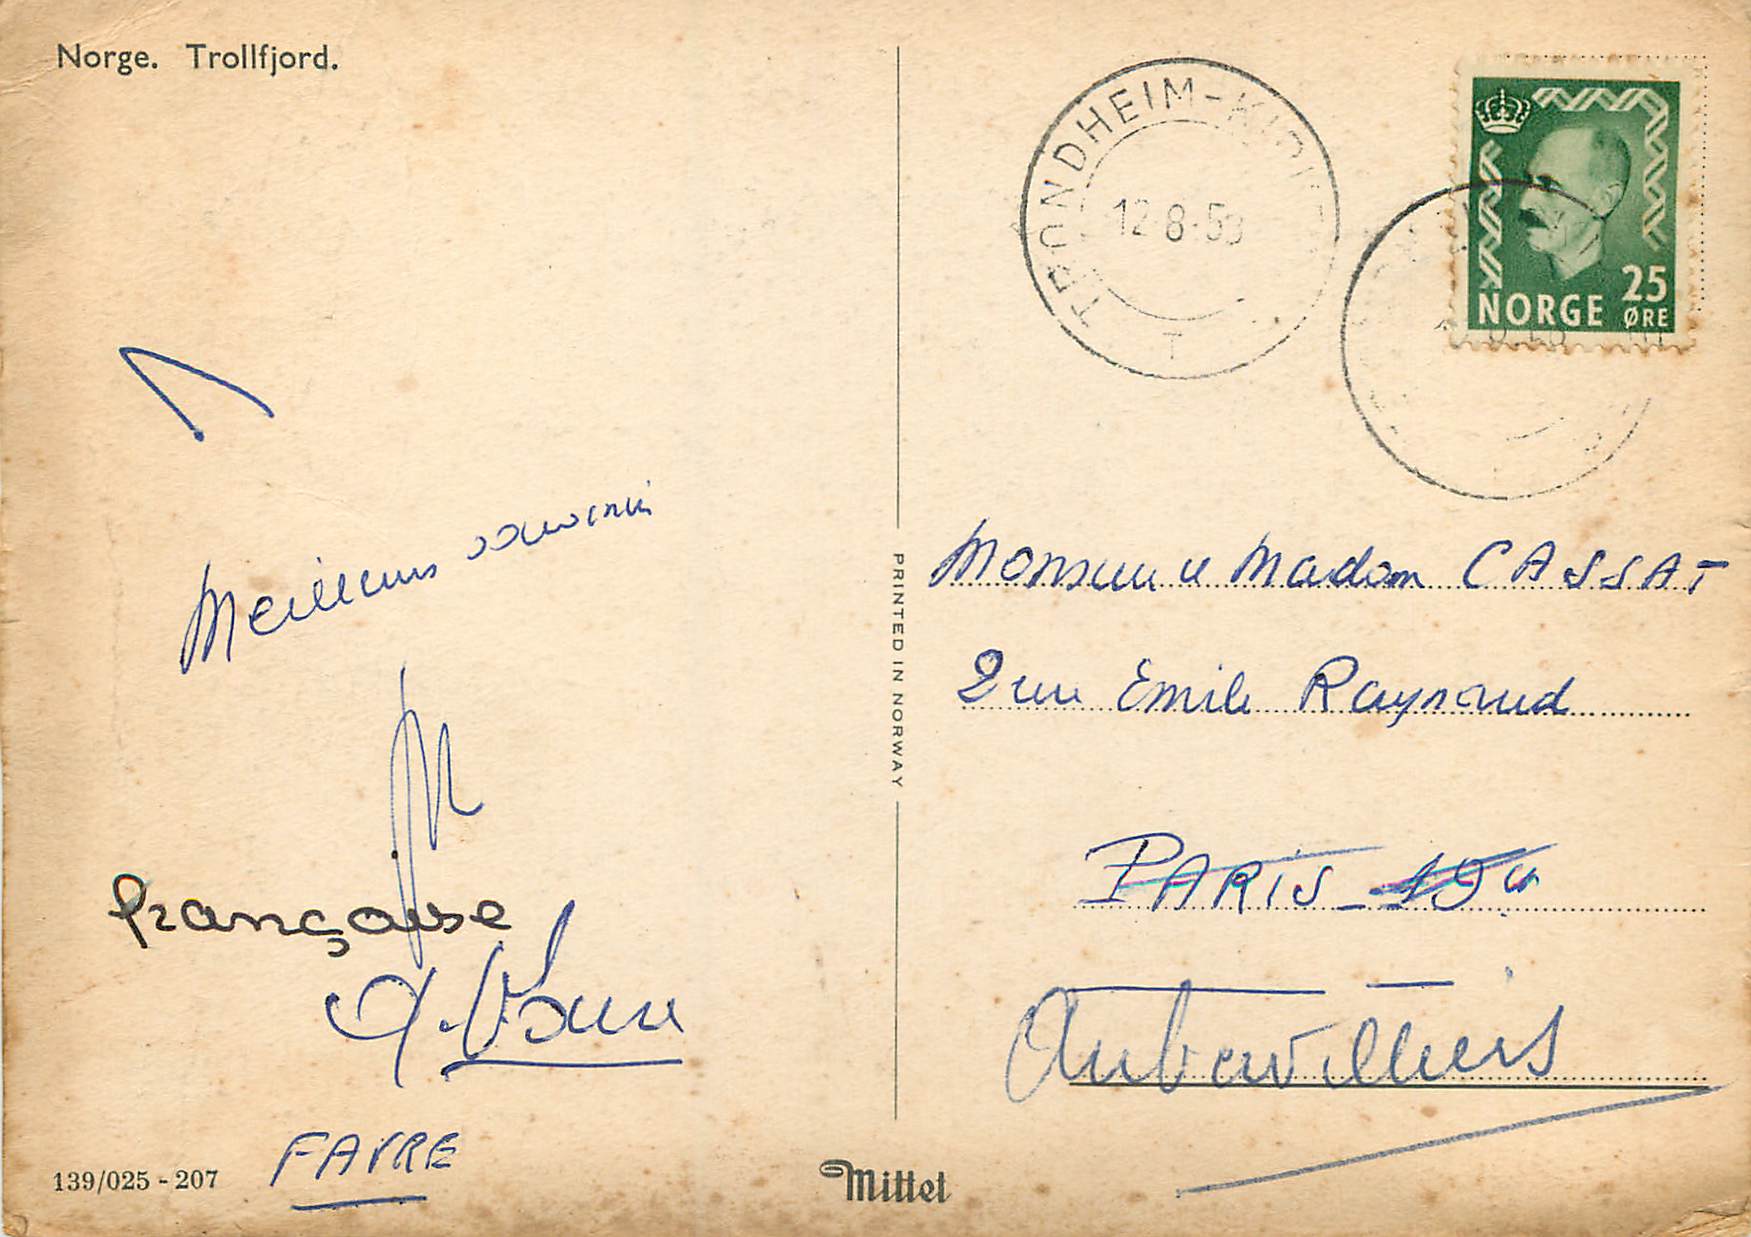 Norge. Trollfjord.
Meilleurs souvenirs
françoise
FAVRE
139/025 - 207
PRINTED IN NORWAY
Mittet
TRONDHEIM-KIRK
12-8-5
T
NORGE 25 ØRE
Monsieur et Madame CASSAT
2 rue Emile Raynaud
PARIS - 19e
Aubervilliers